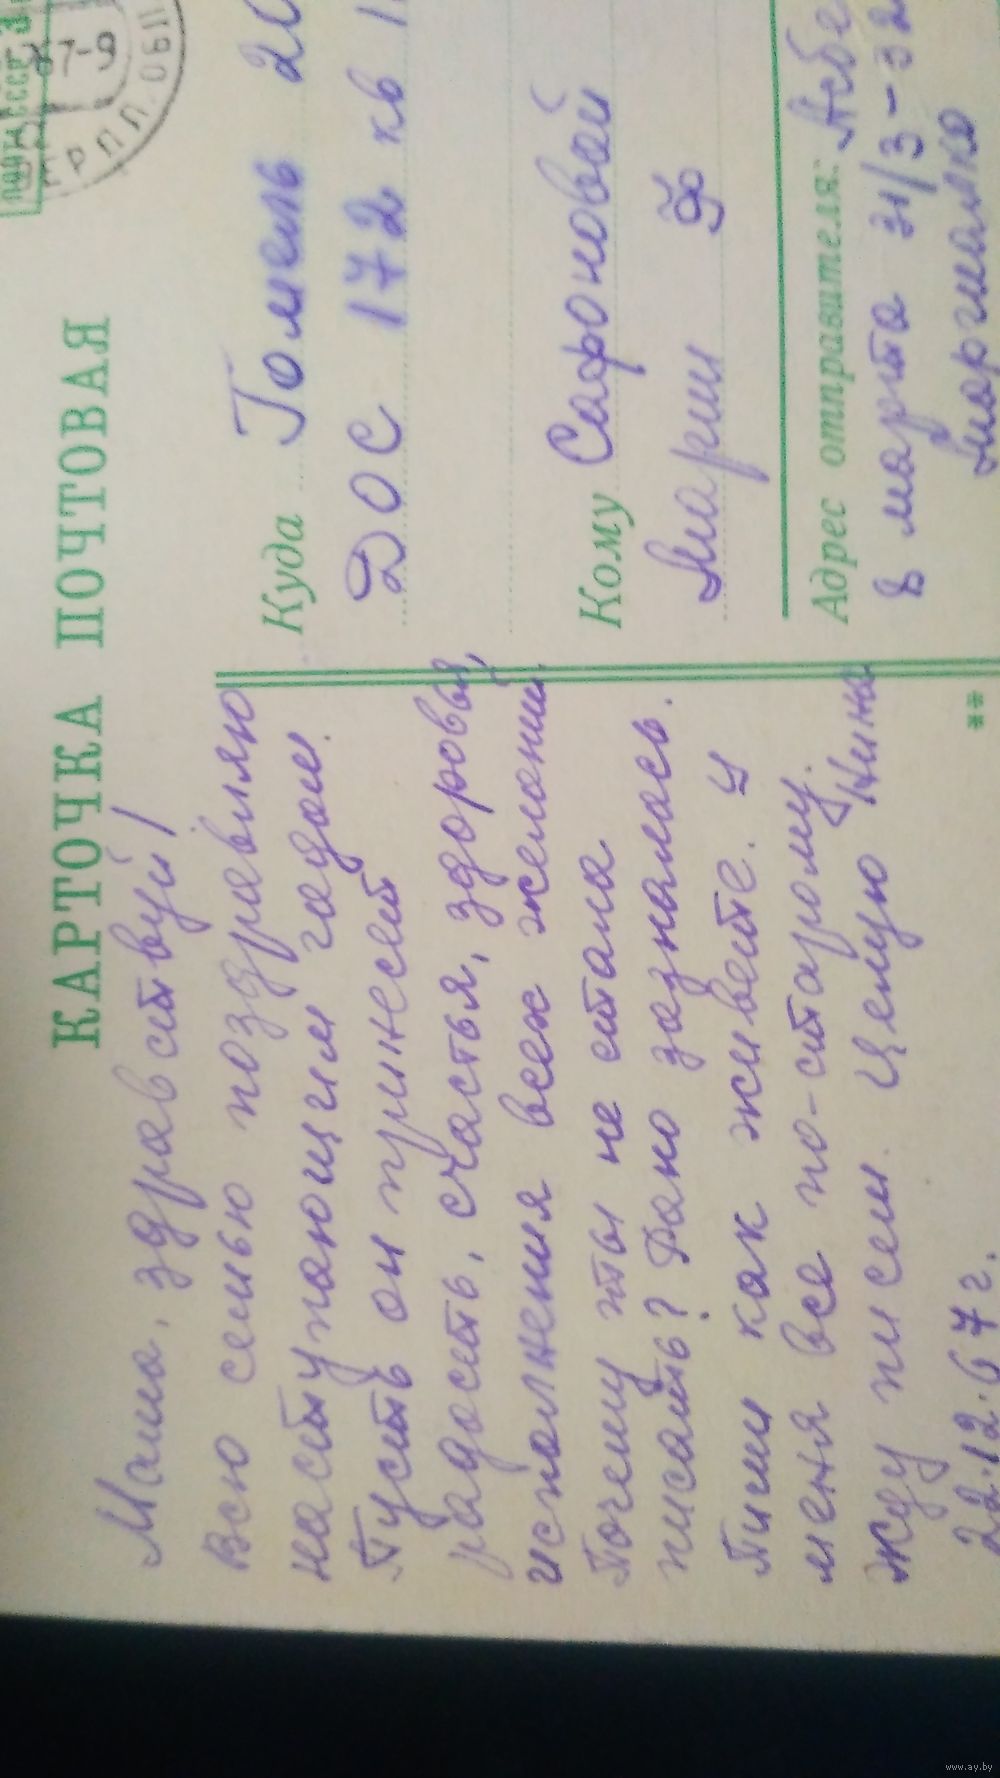 КАРТОЧКА ПОЧТОВАЯ
Маша, здравствуй!
Всю семью поздравляю
наступающим годом.
Пусть он принесет
радость, счастья, здоровья,
исполнения всех желаний.
Почему ты не стала
писать? Рано зазналась.
Пиши как живете. У
меня все по-старому.
Жду писем. Целую Нина
22.12.67 г.
Куда Гомель
ДОС 172 кв
Кому Сафоновой
Марии Ф
Адрес отправителя:
8 марта 31/3-32
ПОЧТА СССР
67-9
www.ay.by